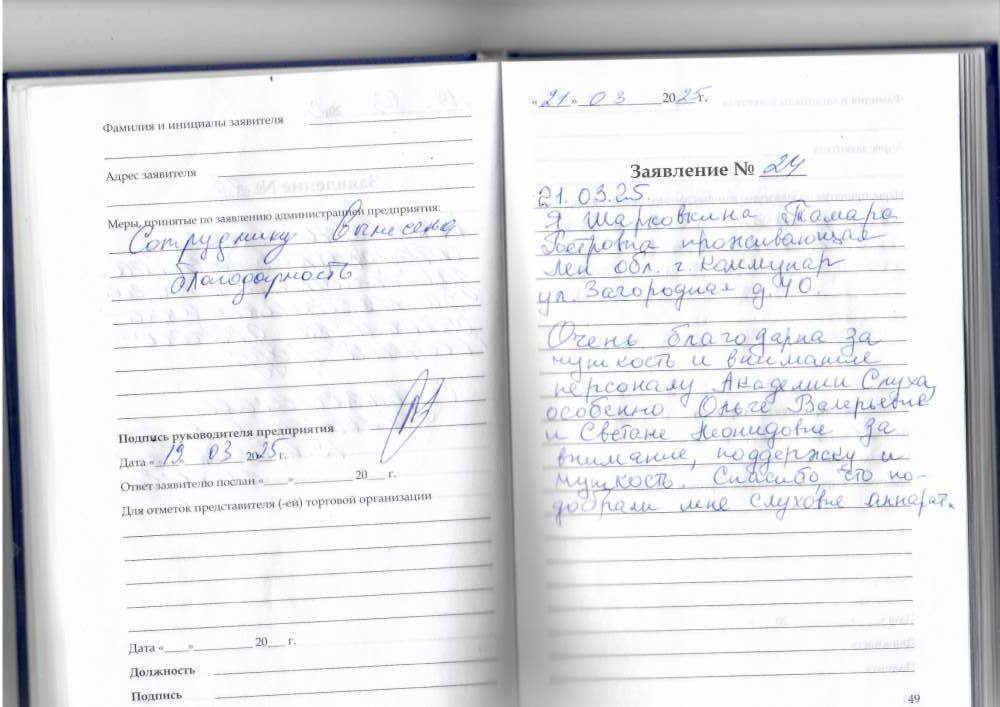 Фамилия и инициалы заявителя
Адрес заявителя
Меры, принятые по заявлению администрацией предприятия:
Сотруднику вынесена
благодарность
Подпись руководителя предприятия
Дата «19» 03 2025 г.
Ответ заявителю послан «____»__________ 20___ г.
Для отметок представителя (-ей) торговой организации
Дата «____»__________ 20___ г.
Должность
Подпись
«21» 03 2025г.
Заявление № 24
21. 03.25.
Я Шарковкина Тамара
Петровна проживающая
Лен обл. г Коммунар
ул. Загородная д. 40.
Очень благодарна за
чуткость и внимание
персоналу Академии Слуха,
особенно Ольге Валерьевне
и Светане Леонидовне за
внимание, поддержку и
чуткость. Спасибо, что по-
добрали мне слуховые аппарат.
49